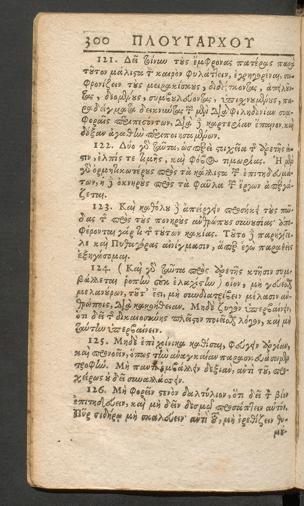 300 ΠΛΟΥΤΑΡΧΟΥ
121. Δεῖ τοίνυν τοὺς ἔμφρονας πατέρας παρὰ
τοῦτον μάλιστα τὸν καιρὸν φυλάττειν, ἐγρηγορέναι, σω-
φρονίζειν τοὺς μειρακίσκους, διδάσκοντας, ἀπειλοῦν-
τας, δεομένους, συμβουλεύοντας, ὑπισχνουμένους, πα-
ραδείγματα δεικνύντας τῶν μὲν διὰ φιληδονίαν συμ-
φοραῖς περιπεσόντων, διὰ δὲ καρτερίαν ἔπαινον καὶ
δόξαν ἀγαθὴν περιποιησαμένων.
122. Δύο γὰρ ταῦτα ὡσπερεὶ στοιχεῖα τῆς ἀρετῆς εἰ-
σιν, ἐλπίς τε τιμῆς, καὶ φόβος τιμωρίας. Ἡ μὲν
γὰρ ὁρμητικωτέρους πρὸς τὰ κάλλιστα τῶν ἐπιτηδευμά-
των, ἡ δ' ὀκνηροὺς πρὸς τὰ φαῦλα τῶν ἔργων ἀπεργά-
ζεται.
123. Καὶ καθόλου δ' ἀπείργειν προσήκει τοὺς παῖ-
δας τῆς πρὸς τοὺς πονηροὺς ἀνθρώπους συνουσίας· ἀπο-
φέρονται γάρ τι τῆς τούτων κακίας. Τοῦτο δὲ παρήγγει-
λε καὶ Πυθαγόρας αἰνίγμασιν, ἅπερ ἐγὼ παραθεὶς
ἐξηγήσομαι.
124. (Καὶ γὰρ ταῦτα πρὸς ἀρετῆς κτῆσιν συμ-
βάλλεται ῥοπὴν οὐκ ἐλαχίστην) οἷον, μὴ γεύεσθαι
μελανούρων, τουτέστι, μὴ συνδιατρίβειν μέλασιν ἀν-
θρώποις, διὰ κακοήθειαν. Μηδὲ ζυγὸν ὑπερβαίνειν,
ὅτι δεῖ τῆς δικαιοσύνης πλεῖστον ποιεῖσθαι λόγον, καὶ μὴ
ταύτην ὑπερβαίνειν.
125. Μηδ' ἐπὶ χοίνικα καθίσαι, φεύγειν ἀργίαν,
καὶ προνοεῖν, ὅπως τὴν ἀναγκαίαν παρασκευάσωμεν
τροφήν. Μὴ παντὶ ἐμβάλλειν δεξιάν, ἀντὶ τοῦ, προ-
χείρως οὐ δεῖ συναλλάττειν.
126. Μὴ φορεῖν στενὸν δακτύλιον, ὅτι δεῖ τὸν βίον
ἐπιτηδεύειν, καὶ μὴ δεῖν δεσμῷ προσάπτειν αὐτόν.
Πῦρ σιδήρῳ μὴ σκαλεύειν· ἀντὶ τοῦ, μὴ ἐρεθίζειν θυ-
μού-